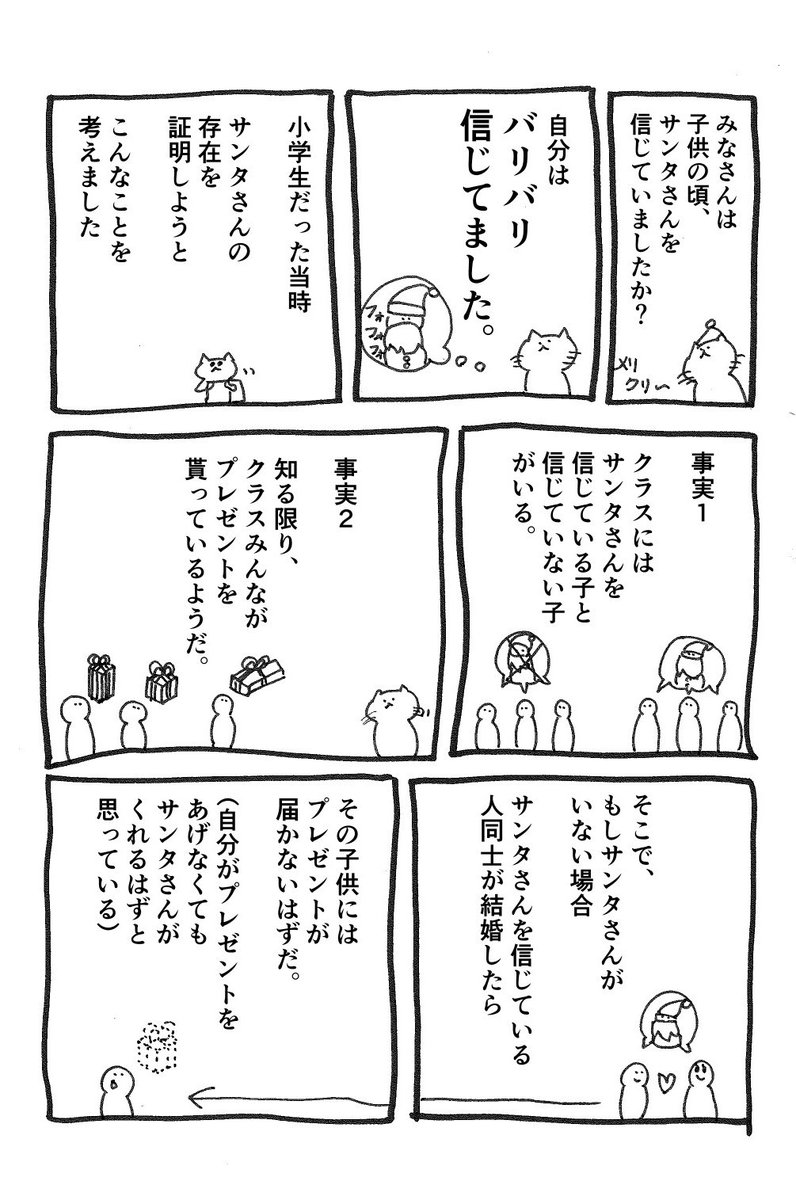 みなさんは
子供の頃、
サンタさんを
信じていましたか？
メリ
クリ〜
自分は
バリバリ
信じてました。
フォ
フォ
フォ
小学生だった当時
サンタさんの
存在を
証明しようと
こんなことを
考えました
事実1
クラスには
サンタさんを
信じている子と
信じていない子
がいる。
事実2
知る限り、
クラスみんなが
プレゼントを
貰っているようだ。
そこで、
もしサンタさんが
いない場合
サンタさんを信じている
人同士が結婚したら
その子供には
プレゼントが
届かないはずだ。
(自分がプレゼントを
あげなくても
サンタさんが
くれるはずと
思っている)